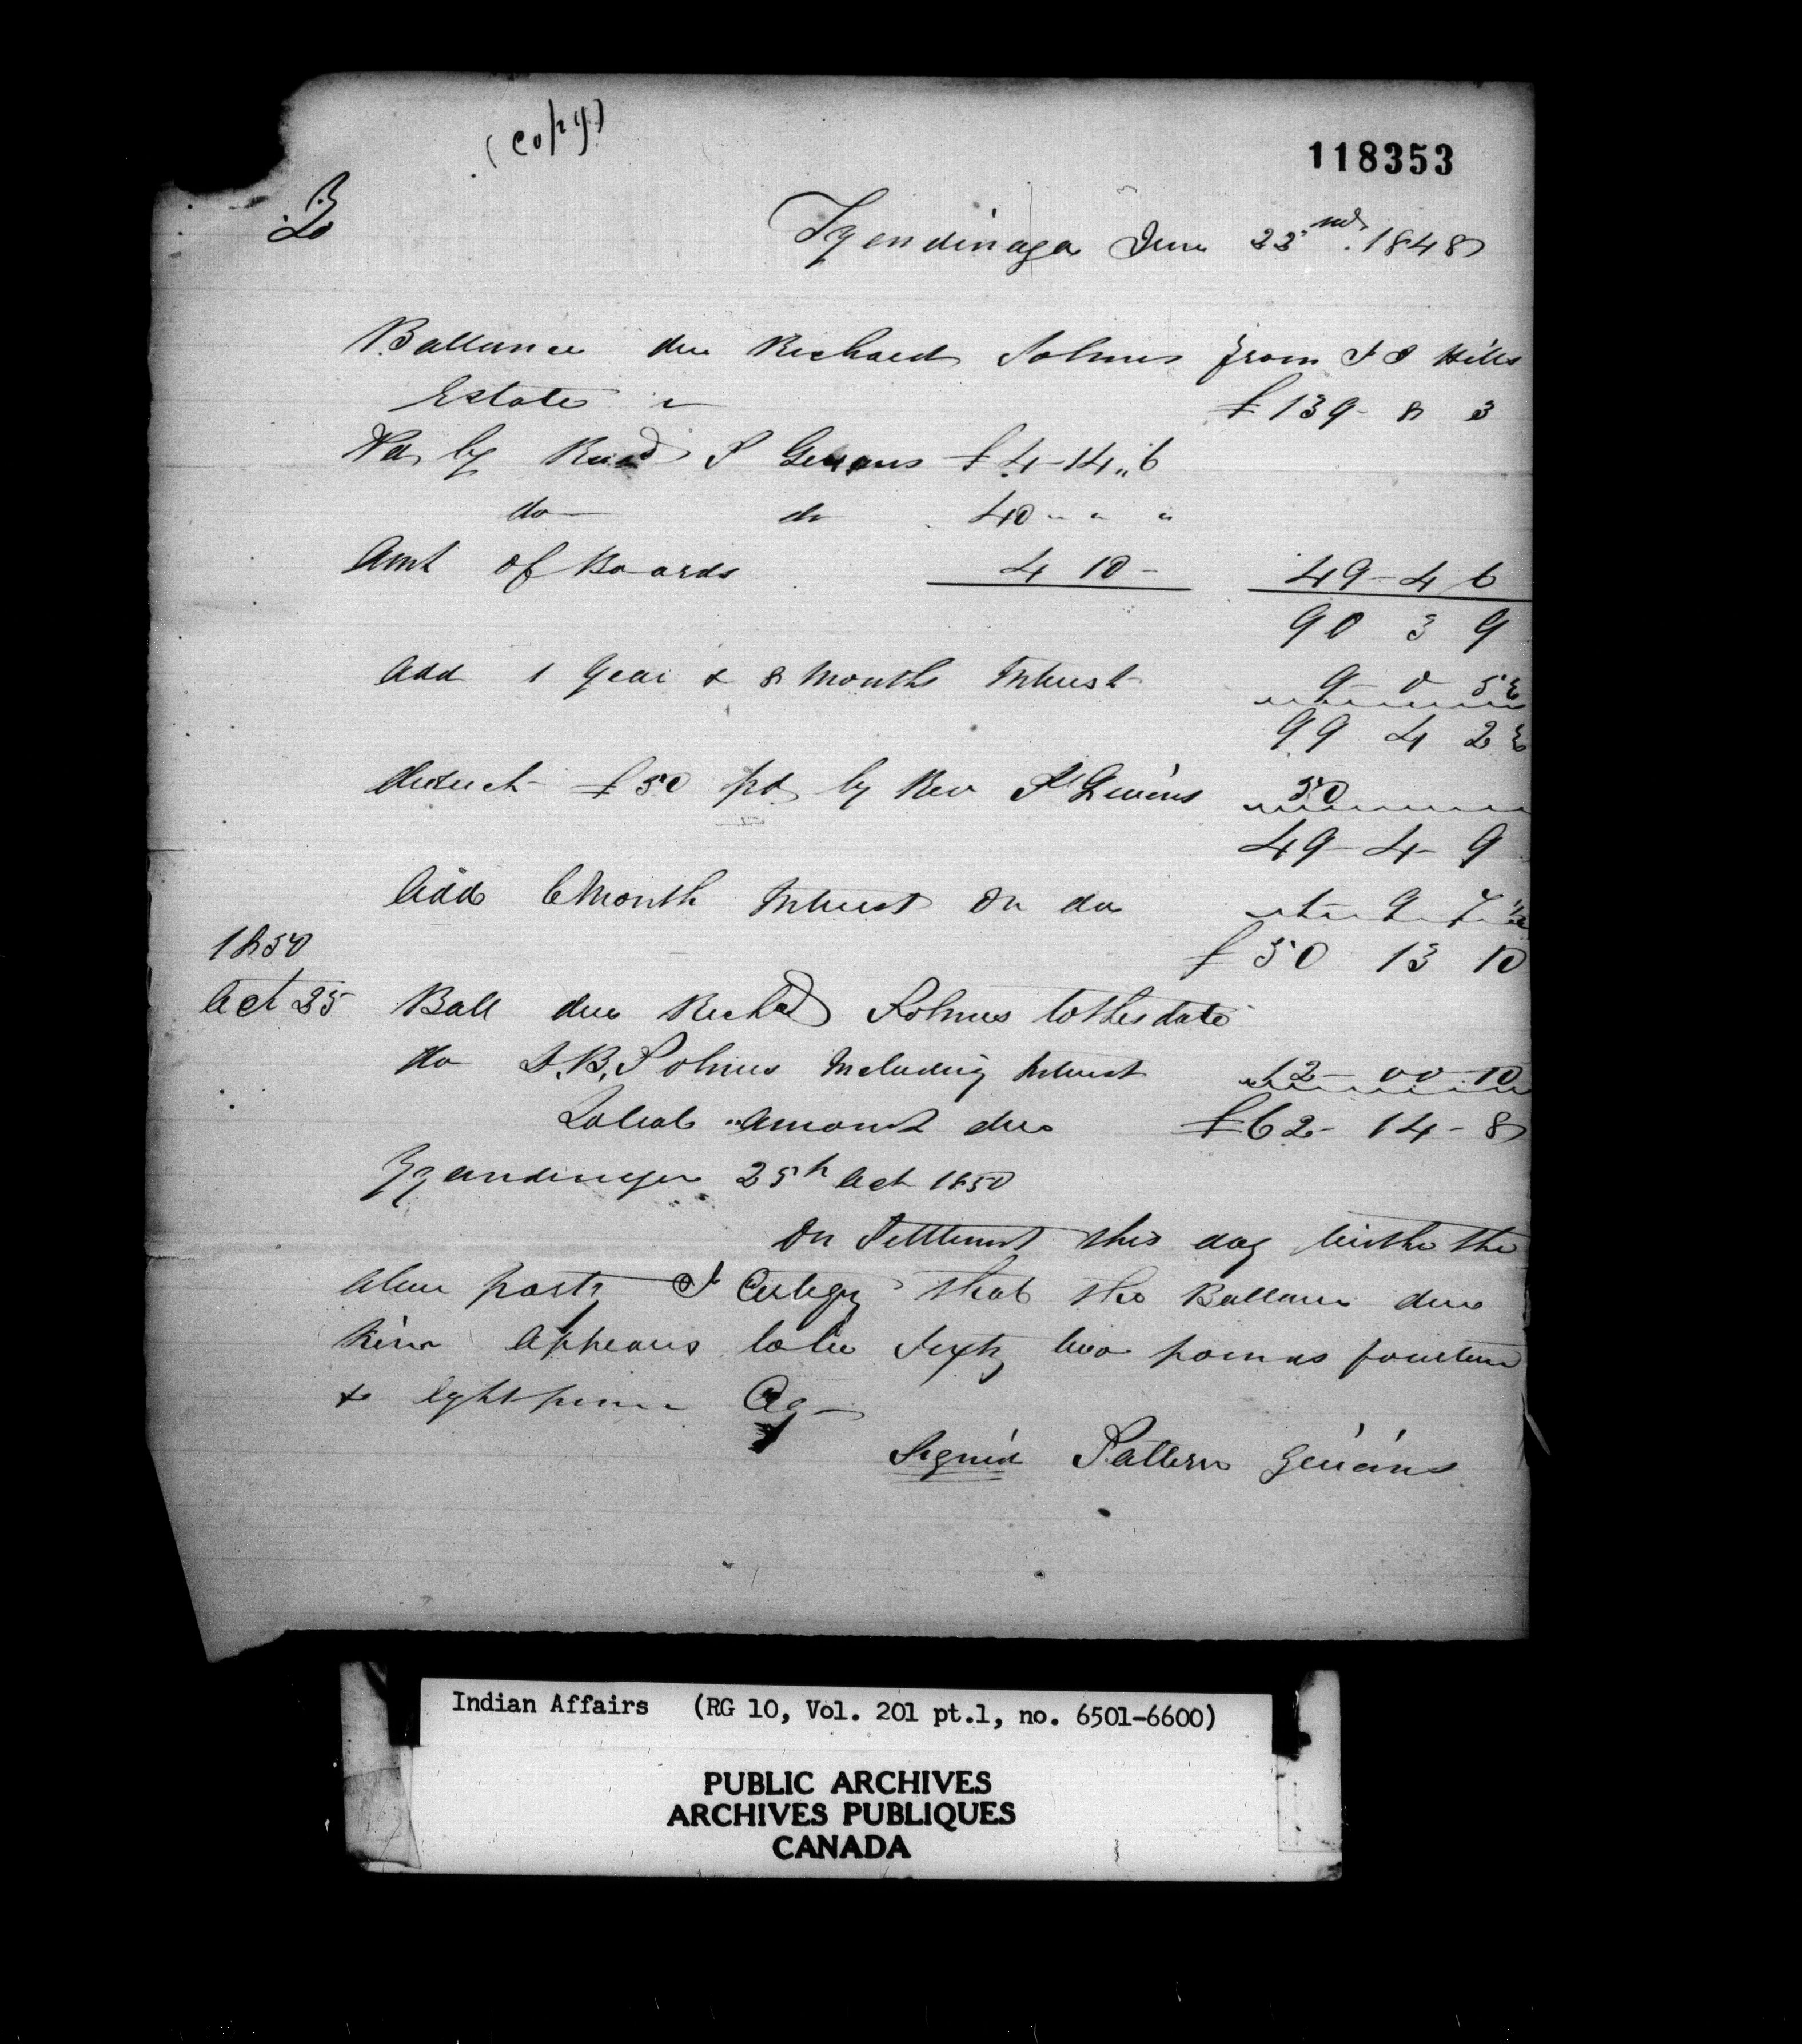 (Copy)
118353
B
Tyendinaga June 22nd. 1848
Ballance due Richard Solmes from J S Hills
Estate is £139- 8 3
Pd by Revd S Givens £4-14"6
do do 40 " " "
Amt of Boards 4 10 - 49-4 6
90 3 9
Add 1 Year & 8 Months Interest 9- 0 5
99 4 2
deduct £50 pd by Rev S Givins 50
49-4-9
Add 6 Month Interest on do 1- 9 7½
£50 13 10
1850
Oct 25 Ball due Richd Solmes to this date
do D.B. Solmes Including Interest 12- 00-10
Total Amount due £62- 14- 8
Tyendinaga 25th Oct 1850
On Settlement this day withe the
above party I Certify that the Ballance due
him appears to be Sixty two pounds fourteen
& eght pence Cy-
Signed Saltern Givins
Indian Affairs (RG 10, Vol. 201 pt.1, no. 6501-6600)
PUBLIC ARCHIVES
ARCHIVES PUBLIQUES
CANADA